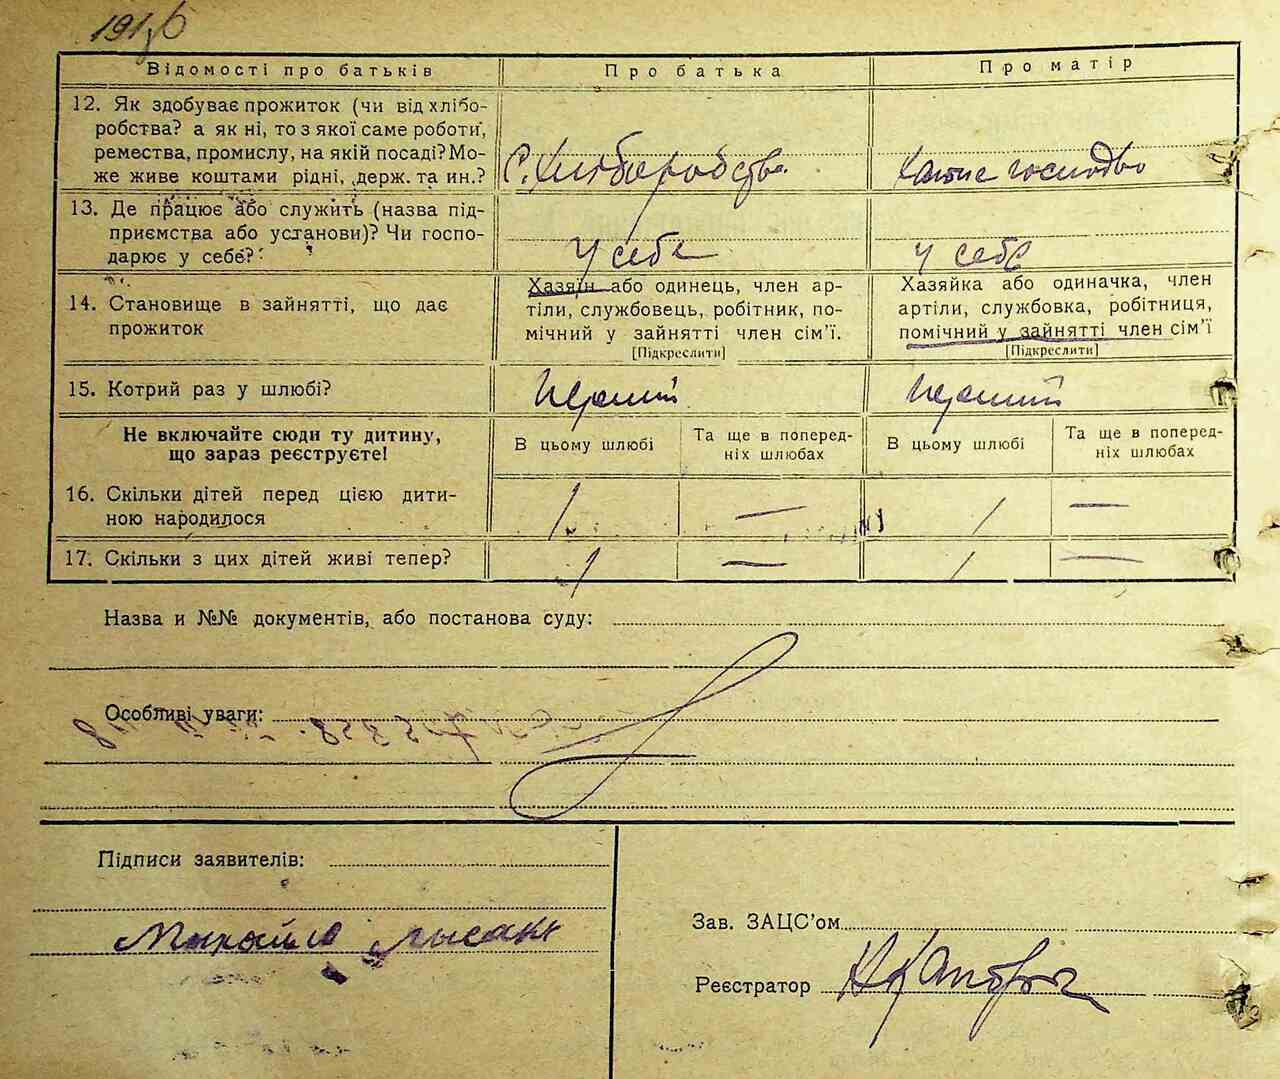 Відомості про батьків
Про батька
Про матір
12. Як здобуває прожиток (чи від хлібо-
робства? а як ні, то з якої саме роботи,
ремества, промислу, на якій посаді? Мо-
же живе коштами рідні, держ. та ин.?
С. Хліборобство
13. Де працює або служить (назва під-
приємства або установи)? Чи госпо-
дарює у себе?
У себе
У себе
14. Становище в зайнятті, що дає
прожиток
Хазяїн або одинець, член ар-
тіли, службовець, робітник, по-
мічний у зайнятті член сім'ї.
[Підкреслити]
Хазяйка або одиначка, член
артіли, службовка, робітниця,
помічний у зайнятті член сім'ї
[Підкреслити]
15. Котрий раз у шлюбі?
Перший
Перший
Не включайте сюди ту дитину,
що зараз реєструєте!
В цьому шлюбі
Та ще в поперед-
ніх шлюбах
В цьому шлюбі
Та ще в поперед-
ніх шлюбах
16. Скільки дітей перед цією дити-
ною народилося
1
—
1
—
17. Скільки з цих дітей живі тепер?
1
—
1
—
Назва и №№ документів, або постанова суду:
Особливі уваги:
Підписи заявителів:
Михайло Лысак
Зав. ЗАЦС'ом
Реєстратор